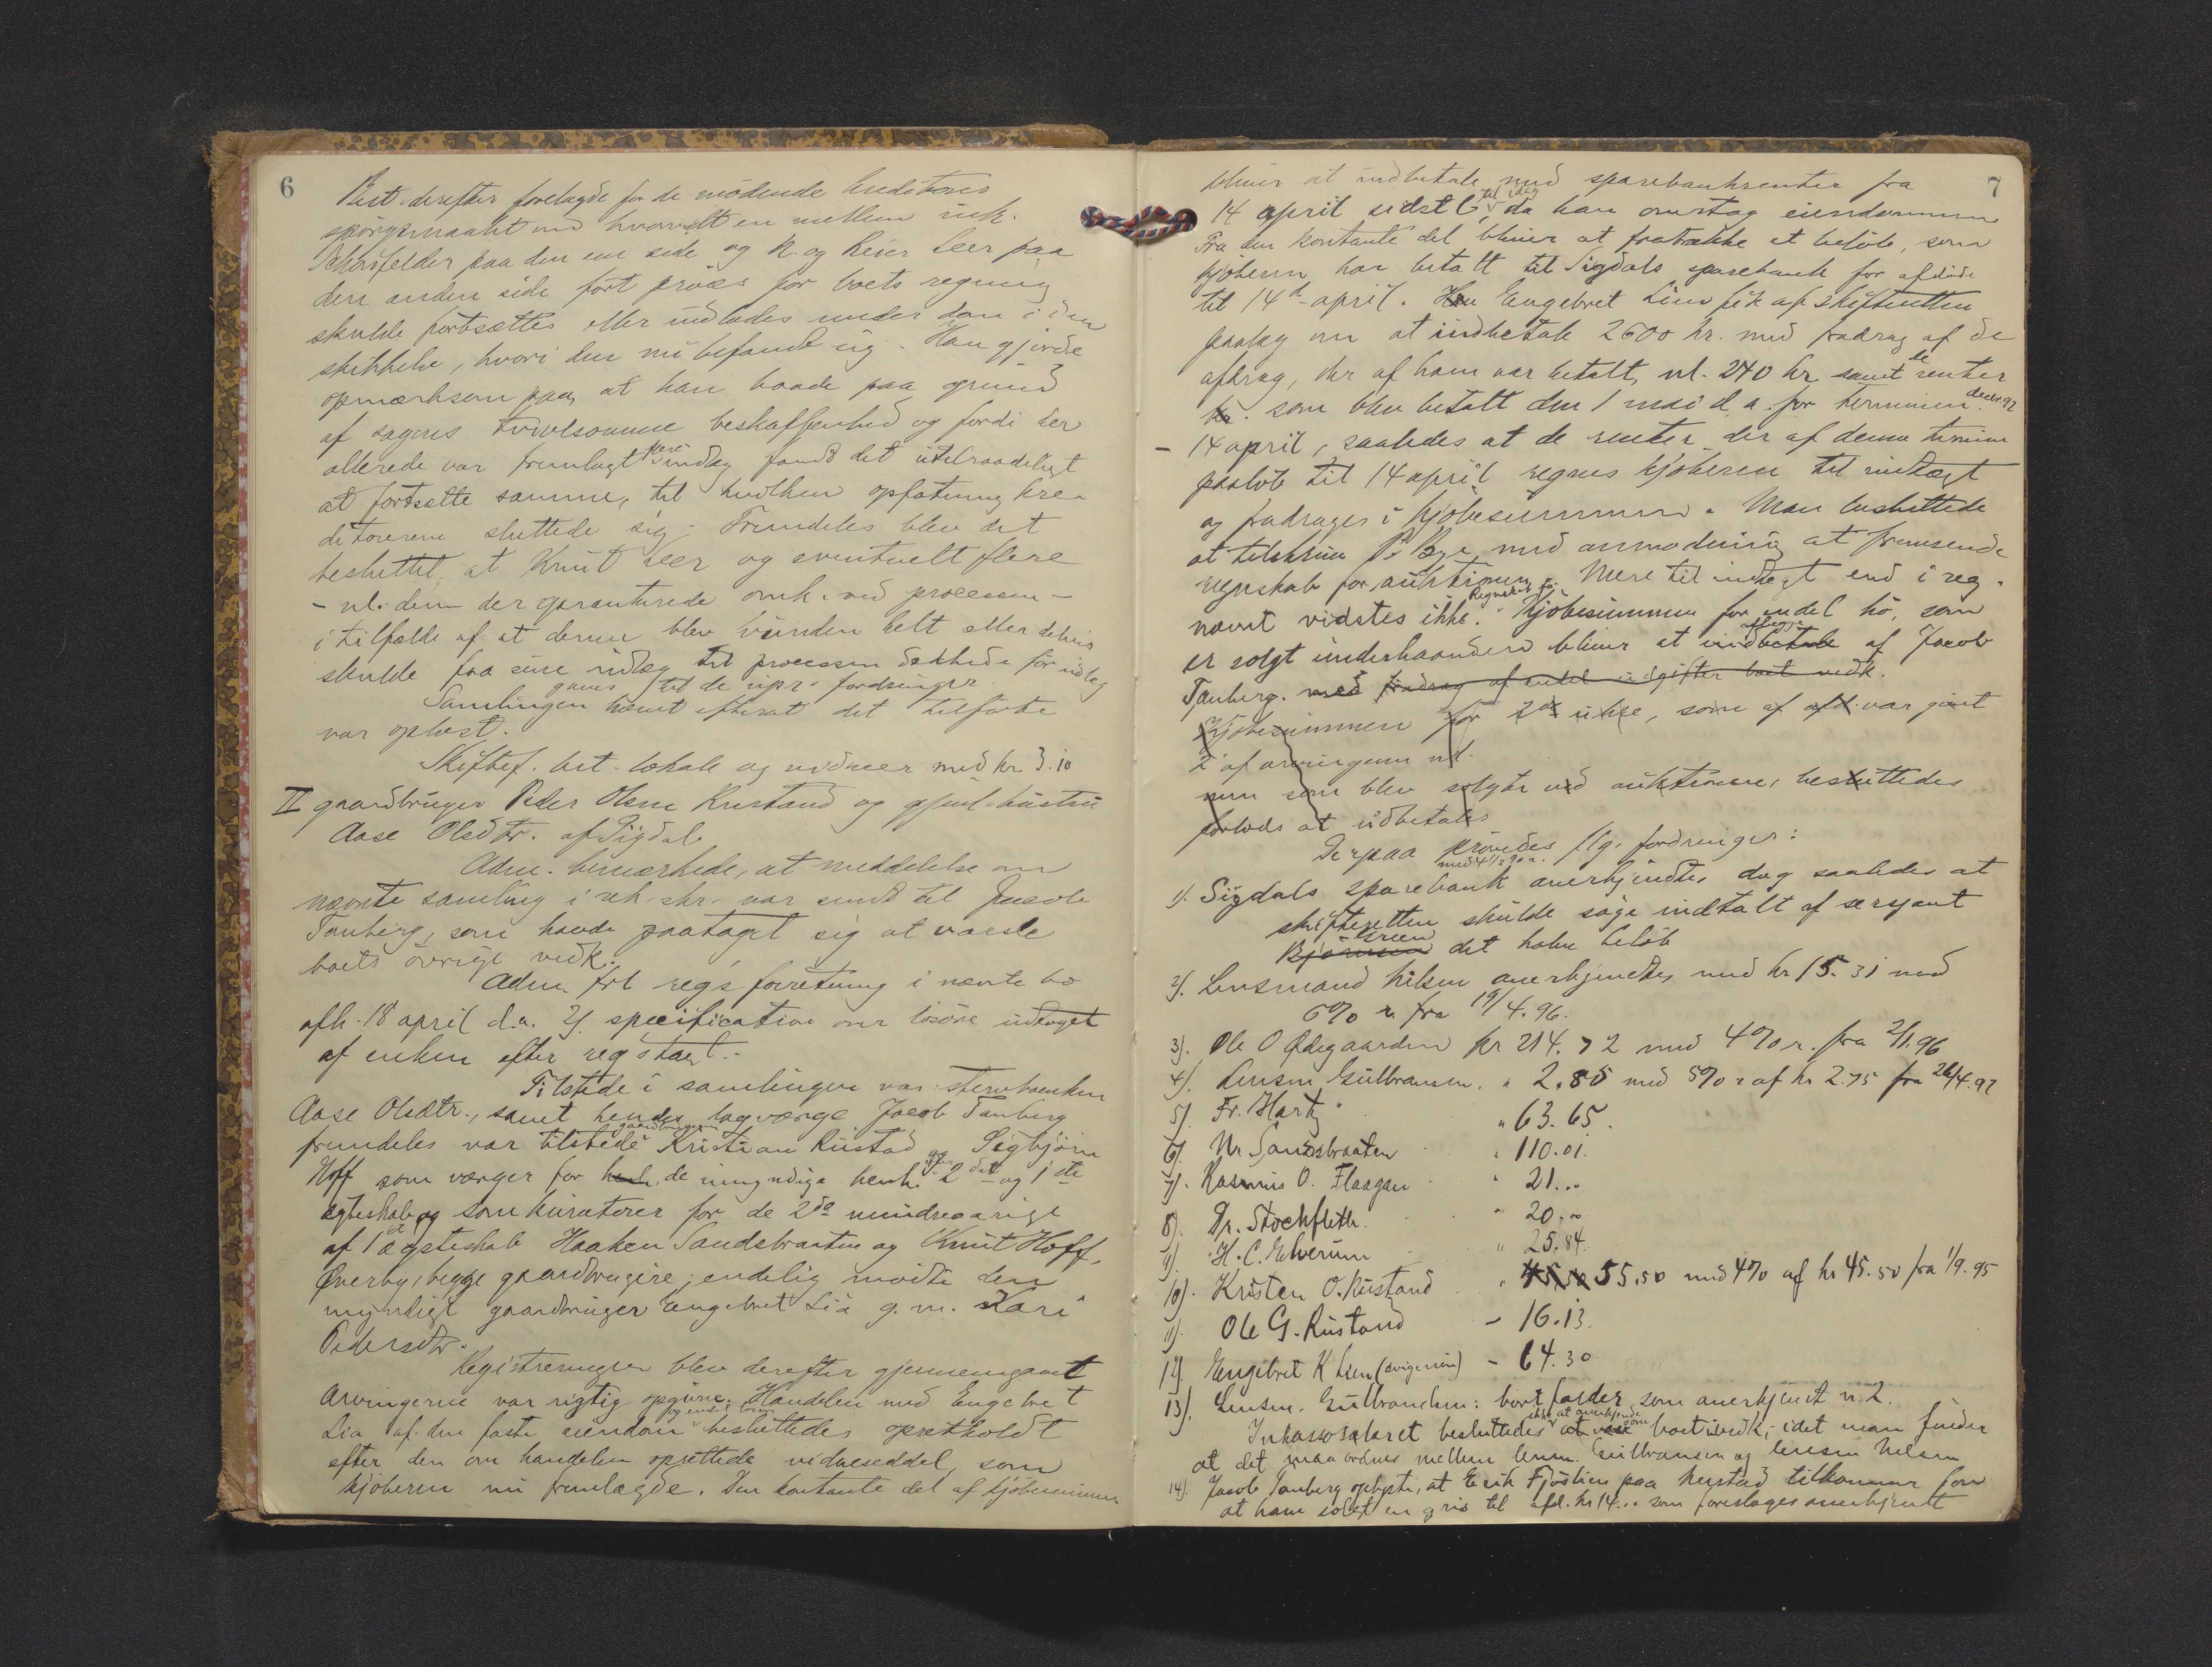 6
Best. derefter forelagde for de mödende kreditorer
spörgsmaalet om hvorvidt en mellem ink.
paa den ene side og K. og Reier Leer paa
den anden side fört proces for boets regning
skulde fortsættes eller indlades under den i den
skikkelse, hvori den nu befandt sig. Han gjorde
opmærksom paa, at han baade paa grund
af sagens tvivlsomme beskaffenhed og fordi der
allerede var fremlagt indlæg fandt det utilraadeligt
at fortsætte samme, til hvilken opfatning kre-
ditorerne sluttede sig. Fremdeles blev det
besluttet, at Knut Leer og eventuelt flere
- nl. dem der garanterede omk. ved processen -
i tilfælde af at denne blev vunden helt eller delvis
skulde faa sine udlæg til processen dækkede för udlæg
gaves til de upr. fordringer
Samlingen hævet efterat det tilförte
var oplæst.
Skiftef. bet. lokale og vidner med kr 3.10
II gaardbruger Peder Olsen Rustand og gjenl. hustru
Aase Olsdtr. af Sigdal.
Adm. bemærkede, at meddelelse om
nævnte samling i rek. skr. var sendt til Jacob
Tanberg, som havde paataget sig at varsle
boets övrige vedk.
Adm. frl regs forretning i nævnte bo
afh. 18 april d.a. 2). specification over lösöre udtaget
af enken efter reg's taxt.
Tilstede i samlingen var: stervboenken
Aase Olsdtr., samt hendes lagværge Jacob Tanberg
fremdeles var tilstede gaardbrugerne Kristian Rustad og Sigbjörn
Hoff som værger for de umyndige henh. af 2det og 1ste
ægteskab og som kuratorer for de 2de mindreaarige
af 1ste ægteskab Haaken Sandsbraaten og Knut Hoff,
Överby, begge gaardbrugere; endelig mödte den
myndige gaardbruger Engebret Lia g. m. Kari
Pedersdtr.
Registreringen blev derefter gjennemgaaet
Arvingerne var rigtig opgivne. Handelen med Engebret
Lia af den faste eiendom og endel lösöre besluttedes opretholdt
efter den om handelen oprettede vidneseddel, som
kjöberen nu fremlagde. Den kontante del af kjöbesummen
7
bliver at indbetale med sparebankrenter fra
14 april sidstl. til idag, da han overtog eiendommen
Fra den kontante del bliver at fratrække et belöb, som
kjöberen har betalt til Sigdals sparebank for afdöde
til 14de april. Engebret Lien fik af skifteretten
paalæg om at indbetale 2600 kr. med fradrag af de
afdrag, der af ham var betalt, nl. 240 kr samt de renter
kr. som blev betalt den 1 mai d.a. for terminen decbr 97
- 14 april, saaledes at de renter der af denne termin
paalöb til 14 april regnes kjöberen til indtægt
og fradrages i kjöbesummen. Man besluttede
at tilskrive P. Bye med anmodning at fremsende
regnskab for auktionen. Mere til indtægt end i reg.
nævnt vidstes ikke. Regnskab for kjöbesummen for endel hö, som
er solgt underhaanden bliver at aflægge indbetale af Jacob
Tanberg. med fradrag af endel udgifter boet vedk.
Kjöbesummen for 2de ukse, som af afd. var givet
2 af arvingerne nl.
men som blev solgte ved auktionen, besluttedes
forlods at udbetales
Derpaa prövedes flg. fordringer:
1). Sigdals sparebank med 4 1/2 % r. anerkjendtes dog saaledes at
skifteretten skulde söge indtalt af sersjant
Green Björnsen det halve belöb
2). Lensmand Nilsen anerkjendtes med kr 15.31 med
5% r. fra 19/4.96.
3). Ole O Ödegaarden kr 214.72 med 4% r. fra 2/1.96
4). Lensm Gulbransen. " 2.85 med 5% r af kr 2.75 fra 26/4.97
5). Fr. Hartz " 63.65.
6). Nr Sandsbraaten " 110.01.
7). Rasmus O. Flaagan " 21...
8). Dr. Stockfleth. " 20...
9). H. C. Elverum " 25.84.
10). Kristen O. Rustand " 45.50 55.50 med 4% af kr 45.50 fra 1/9.95
11). Ole G. Rustand - 16.13.
12). Engebret K Lien (svigersön) - 64.30
13). Lensm. Gulbransen: bortfalder som anerkjendt nr 2.
Inkassosalæret besluttedes ikke at anerkjende at være som boet uvedk., idet man finder
at det maa ordnes mellem lensm. Gulbransen og lensm Nilsen
14). Jacob Tanberg oplyste, at Erik Fjöslien paa Nerstad tilkommer for
at have solgt en gris til afd. kr 14... som foreslages anerkjendt